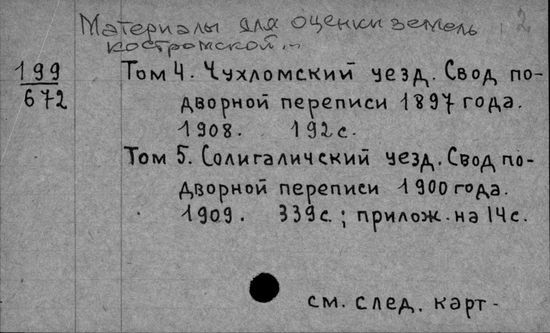 Материалы для оценки земель 2
Костромской...
199 Том 4. Чухломский уезд. Свод по-
672 дворной переписи 1897 года.
1908. 192 с.
Том 5. Солигаличский уезд. Свод по-
дворной переписи 1900 года.
1909. 339 с.; прилож. на 14 с.
см. след. карт-